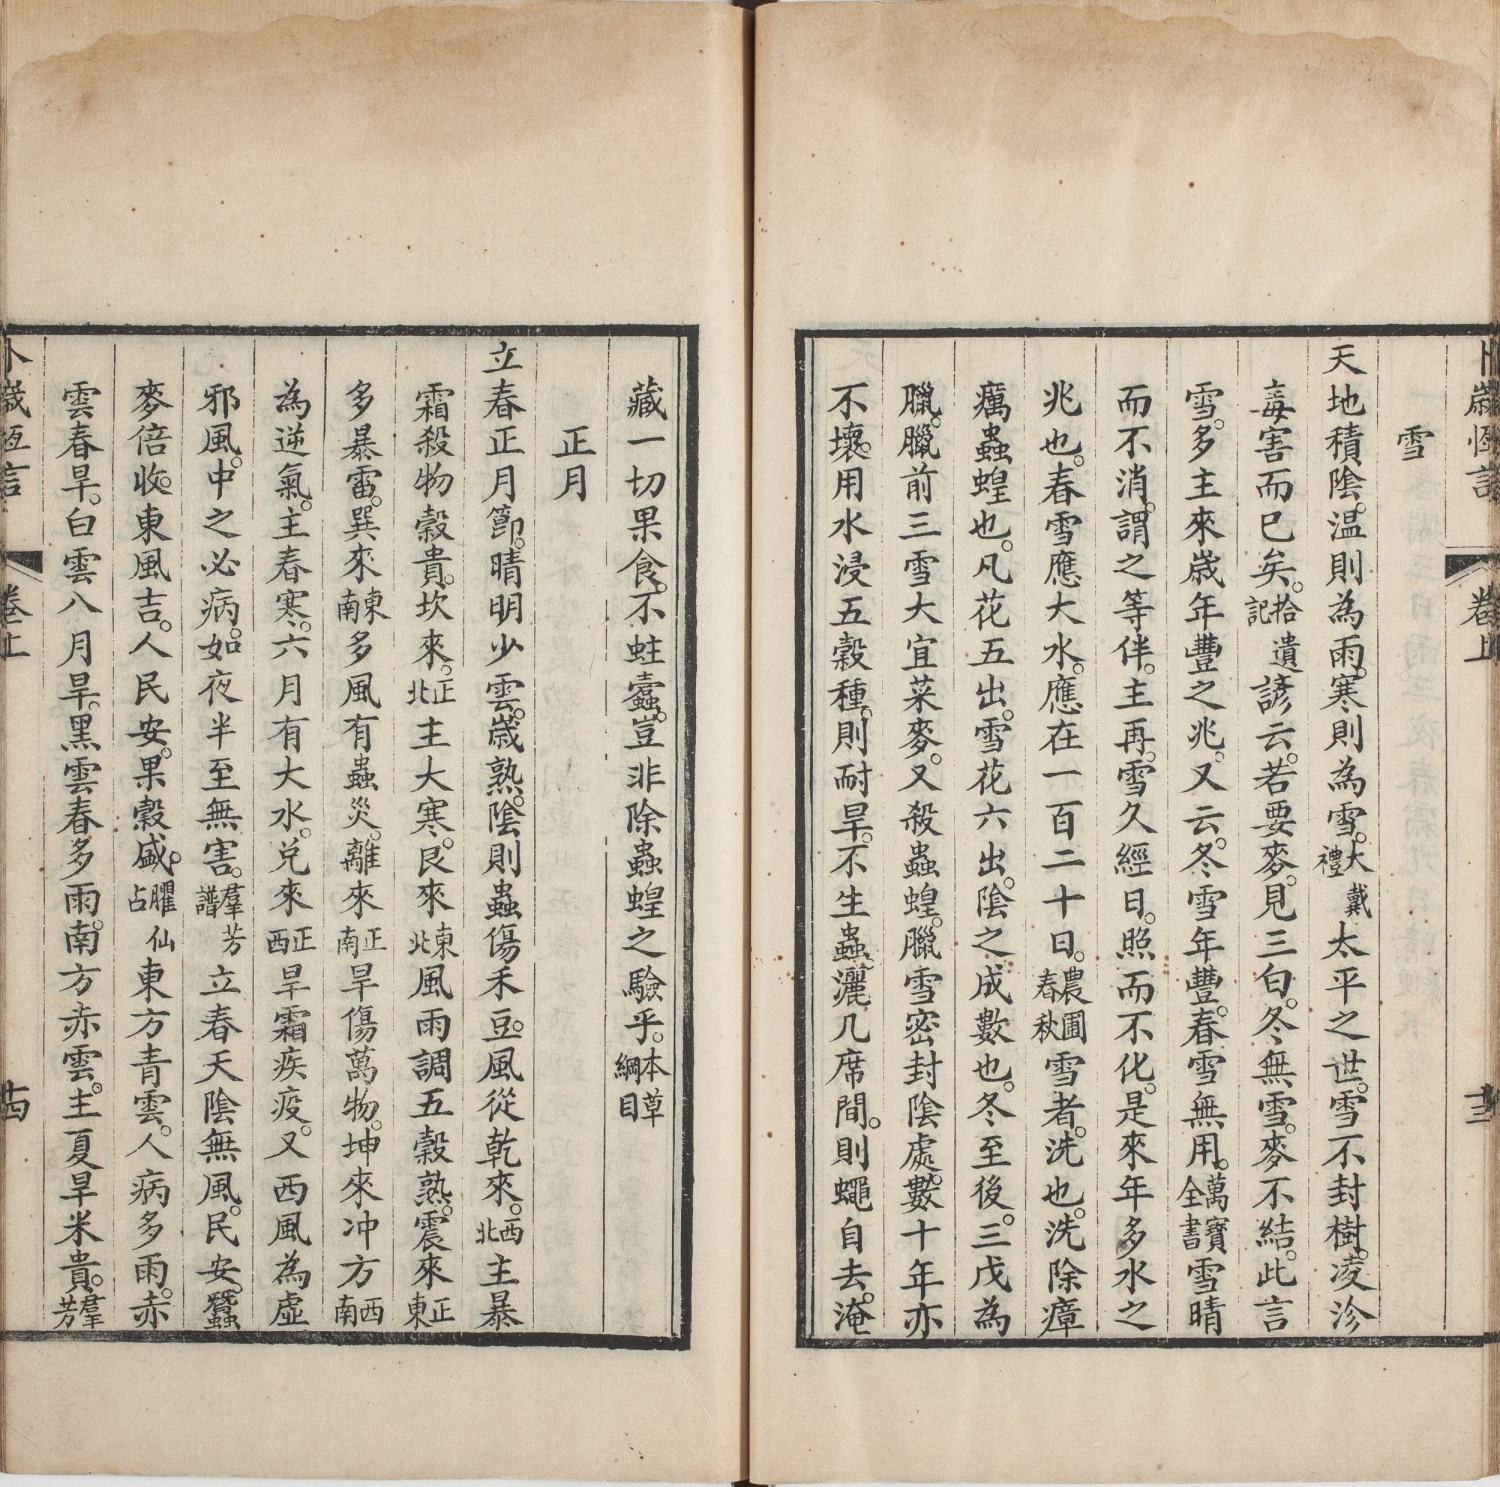 雪
天地積陰。温則為雨。寒則為雪。大戴禮太平之世。雪不封樹。凌沴
毒害而已矣。拾遺記諺云。若要麥。見三白。冬無雪。麥不結。此言
雪。多主來歲年豐之兆。又云。冬雪年豐。春雪無用。萬寶全書雪晴
而不消。謂之等伴。主再。雪久經日。照而不化。是來年多水之
兆也。春雪應大水。應在一百二十日。農圃春秋雪者。洗也。洗除瘴
癘蟲蝗也。凡花五出。雪花六出。陰之成數也。冬至後。三戊為
臘。臘前三雪大宜菜麥。又殺蟲蝗。臘雪密封陰處。數十年亦
不壞。用水浸五穀種。則耐旱。不生蟲。灑几席間。則蠅自去。淹
藏一切果食。不蛀蠹。豈非除蟲蝗之驗乎。本草綱目
正月
立春正月節。晴明少雲。歲熟。陰則蟲傷禾豆。風從乾來。西北主暴
霜殺物穀貴。坎來。正北主大寒。艮來東北風雨調五穀熟。震來正東
多暴雷。巽來東南多風有蟲災。離來正南旱傷萬物。坤來冲方西南
為逆氣。主春寒。六月有大水。兌來正西旱霜疾疫。又西風為虛
邪風。中之必病。如夜半至無害。羣芳譜立春天陰無風。民安。蠶
麥倍收。東風吉。人民安。果穀盛。臞仙占東方青雲。人病多雨。赤
雲春旱。白雲八月旱。黑雲春多雨。南方赤雲。主夏旱米貴。羣芳
卜歲恆言
卷上
十四